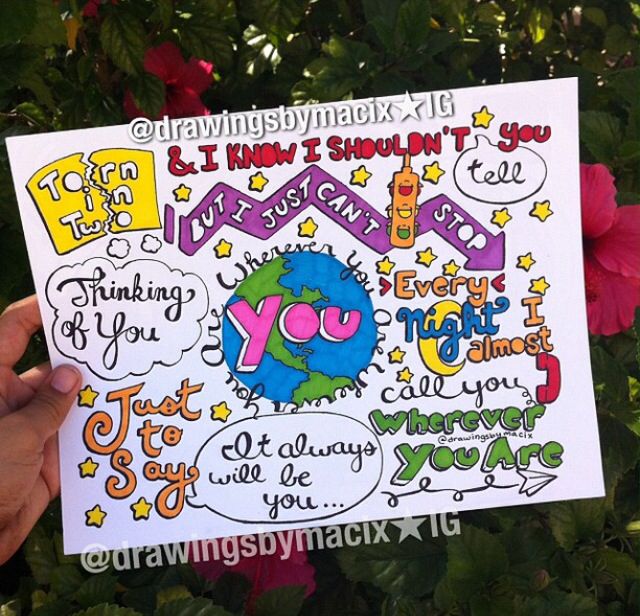 @drawingsbymacix★IG
Torn
in
Two
& I KNOW I SHOULDN'T
tell
you
BUT I JUST CAN'T STOP
Thinking
of You
Wherever You Are
You
>Every<
Night I
almost
call you
Just
to
Say
It always
will be
you...
Wherever
@drawingsbymacix
You Are
@drawingsbymacix★IG